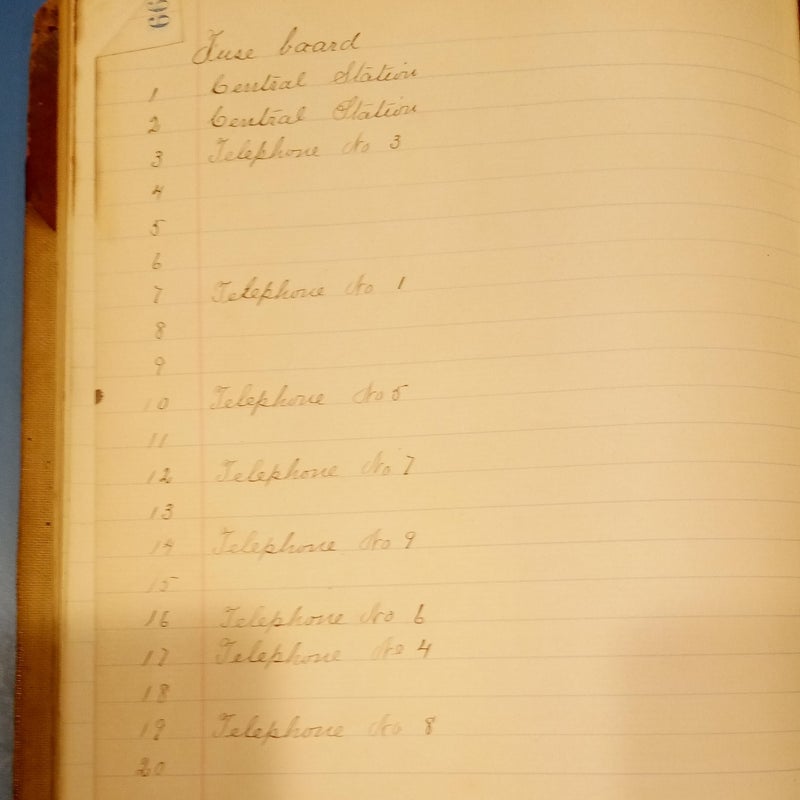 66
Fuse board
1 Central Station
2 Central Station
3 Telephone No 3
4
5
6
7 Telephone No 1
8
9
10 Telephone No 5
11
12 Telephone No 7
13
14 Telephone No 9
15
16 Telephone No 6
17 Telephone No 4
18
19 Telephone No 8
20